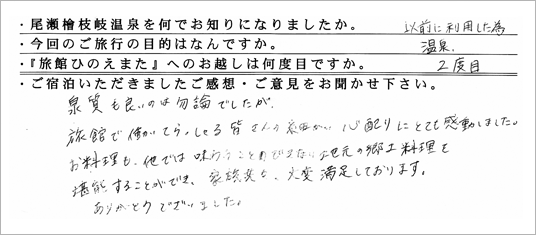 ・尾瀬檜枝岐温泉を何でお知りになりましたか。 以前に利用した為
・今回のご旅行の目的はなんですか。 温泉.
・『旅館ひのえまた』へのお越しは何度目ですか。 2度目
・ご宿泊いただきましたご感想・ご意見をお聞かせ下さい。
泉質も良いのは勿論でしたが、
旅館で働いてらっしゃる皆さんの細かい心配りにとても感動しました。
お料理も、他では味わうことのできない地元の郷土料理を
堪能することができ、家族共々、大変満足しております。
ありがとうございました。